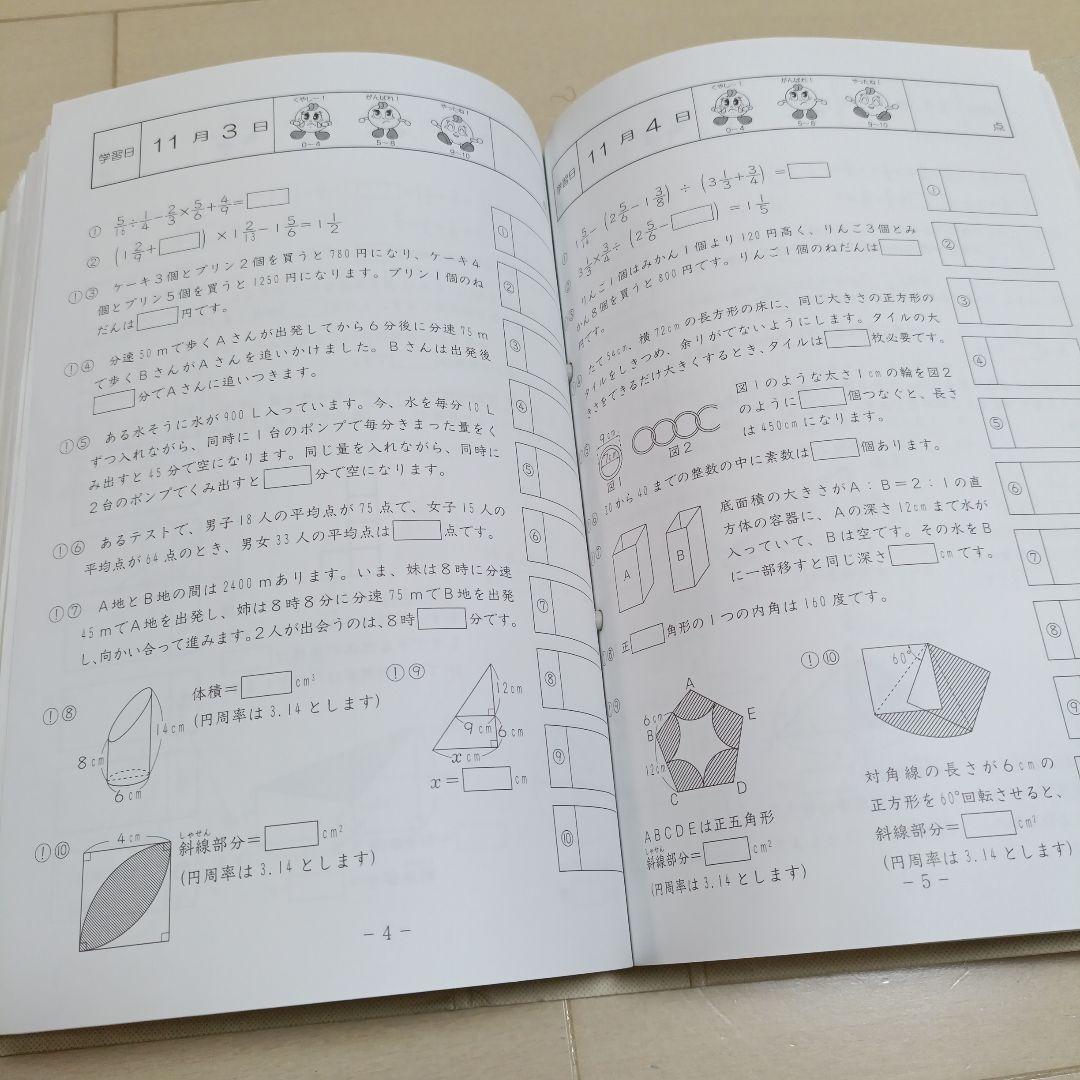 学習日 11月3日
くやし〜! がんばれ! やったね!
0〜4 5〜8 9〜10
① 5/16÷1/4−2/3×5/6+4/9=□
② (1 2/9+□)×1 2/13−1 5/6=1 1/2
!③ ケーキ3個とプリン2個を買うと780円になり、ケーキ4
個とプリン5個を買うと1250円になります。プリン1個のね
だんは□円です。
!④ 分速50mで歩くAさんが出発してから6分後に分速75m
で歩くBさんがAさんを追いかけました。Bさんは出発後
□分でAさんに追いつきます。
!⑤ ある水そうに水が900L入っています。今、水を毎分10L
ずつ入れながら、同時に1台のポンプで毎分きまった量をく
み出すと45分で空になります。同じ量を入れながら、同時に
2台のポンプでくみ出すと□分で空になります。
!⑥ あるテストで、男子18人の平均点が75点で、女子15人の
平均点が64点のとき、男女33人の平均点は□点です。
!⑦ A地とB地の間は2400mあります。いま、妹は8時に分速
45mでA地を出発し、姉は8時8分に分速75mでB地を出発
し、向かい合って進みます。2人が出会うのは、8時□分です。
!⑧ 体積=□cm³
(円周率は3.14とします)
14cm
8cm
6cm
!⑨
12cm
9cm 6cm
xcm
x=□cm
!⑩ 4cm
斜線部分=□cm²
しゃせん
(円周率は3.14とします)
①
②
③
④
⑤
⑥
⑦
⑧
⑨
⑩
−4−
学習日 11月4日
くやし〜! がんばれ! やったね!
0〜4 5〜8 9〜10
点
−(2 5/6−1 3/8)÷(3 1/3+3/4)=□
3 1/3×3/4÷(2 5/6−□)=1 1/5
りんご1個はみかん1個より120円高く、りんご3個とみ
かん8個を買うと800円です。りんご1個のねだんは□
円です。
たて54cm、横72cmの長方形の床に、同じ大きさの正方形の
タイルをしきつめ、余りがでないようにします。タイルの大
きさをできるだけ大きくするとき、タイルは□枚必要です。
図1のような太さ1cmの輪を図2
のように□個つなぐと、長さ
は450cmになります。
9cm
7cm
図1
図2
⑥ 30から40までの整数の中に素数は□個あります。
底面積の大きさがA:B=2:1の直
方体の容器に、Aの深さ12cmまで水が
入っていて、Bは空です。その水をB
に一部移すと同じ深さ□cmです。
A B
⑧ 正□角形の1つの内角は160度です。
⑨
A
6cm
B E
12cm
C D
ABCDEは正五角形
しゃせん
斜線部分=□cm²
(円周率は3.14とします)
!⑩
60°
対角線の長さが6cmの
正方形を60°回転させると、
斜線部分=□cm²
(円周率は3.14とします)
①
②
③
④
⑤
⑥
⑦
⑧
⑨
−5−